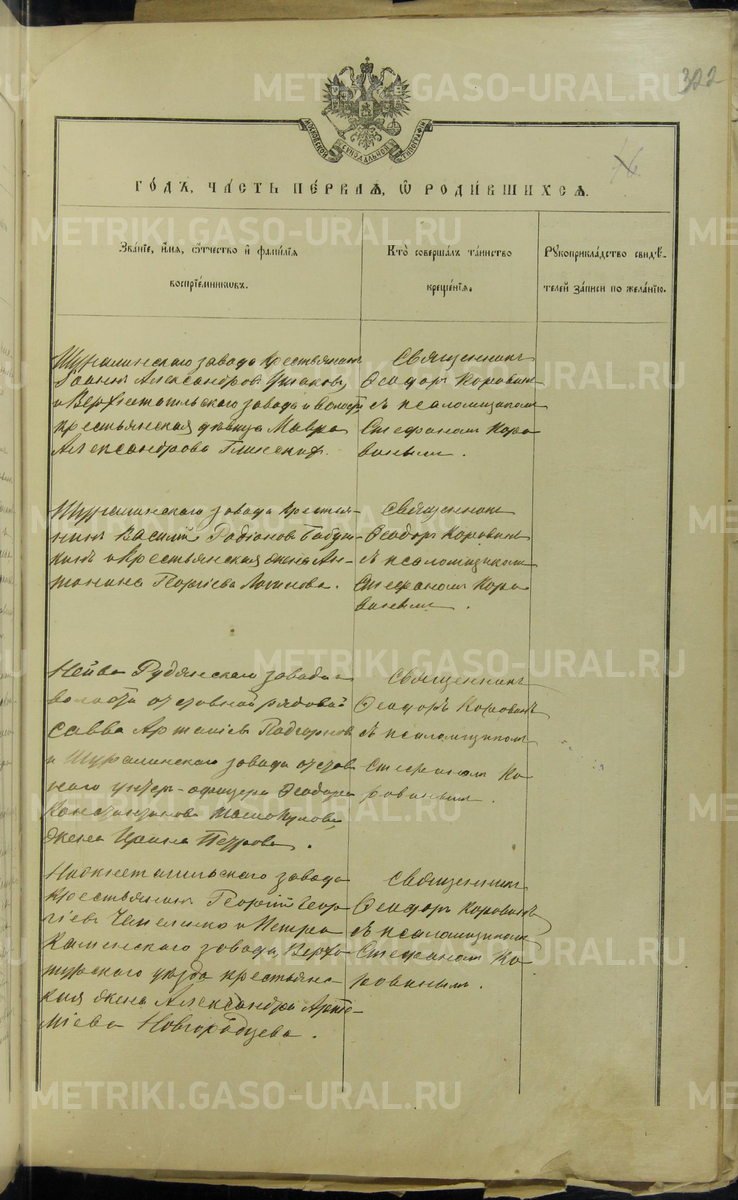 METRIKI.GASO-URAL.RU
322
МОСКОВСКОЙ СѴНОДАЛЬНОЙ ТИПОГРАФІИ
ГО́ДЪ, ЧА́СТЬ ПЕ́РВАѦ, Ѡ҆ РОДИ́ВШИХСѦ.
Зва́нїе, и҆́мѧ, ѻ҆́тчество и҆ фами́лїѧ
воспрїе́мникѡвъ.
Кто̀ соверша́лъ та́инство
креще́нїѧ.
Рꙋкоприкла́дство свидѣ́-
телей за́писи по жела́нїю.
Шуралинскаго завода крестьянинъ
Іоаннъ Александровъ Ушаковъ
и Верхнетагильскаго завода и волости
крестьянская девица Мавра
Александрова
Священникъ
Ѳеодоръ Коровинъ
съ псаломщикомъ
Стефаномъ Коро
винымъ.
Шуралинскаго завода крестья-
нинъ Василій Родіоновъ Бабуш
кинъ и крестьянская жена Ан-
тонина Георгіева Логинова.
Священникъ
Ѳеодоръ Коровинъ
съ псаломщикомъ
Стефаномъ Коро
винымъ.
Нейво Рудянскаго завода и
волости отставной рядовой
Савва Артеміевъ Подгорновъ
и Шуралинскаго завода отстав
ного унтеръ-офицера Ѳеодора
Константинова
жена Ирина Петрова.
Священникъ
Ѳеодоръ Коровинъ
съ псаломщикомъ
Стефаномъ Ко
ровинымъ.
Нижнетагильскаго завода
крестьянинъ Георгій Геор
гіевъ и Петро
Каменскаго завода, Верхо
турскаго уезда крестьянс
кая жена Александра Арте
міева Новгородцева.
Священникъ
Ѳеодоръ Коровинъ
съ псаломщикомъ
Стефаномъ Ко
ровинымъ.